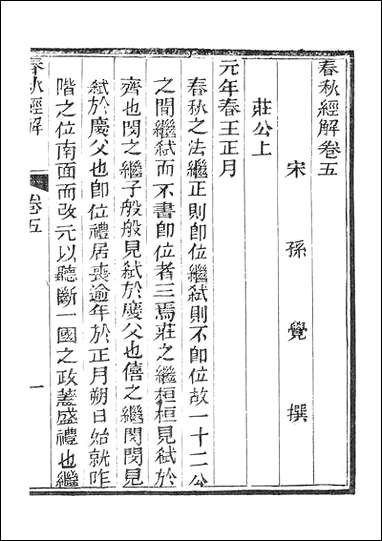 春秋經解卷五
宋 孫覺 撰
莊公上
元年春王正月
春秋之法繼正則即位繼弒則不即位故一十二公
之間繼弒而不書即位者三焉莊之繼桓桓見弒於
齊也閔之繼子般般見弒於慶父也僖之繼閔閔見
弒於慶父也即位禮居喪逾年於正月朔日始就阼
階之位南面而改元以聽斷一國之政蓋盛禮也繼
春秋經解
卷五
一